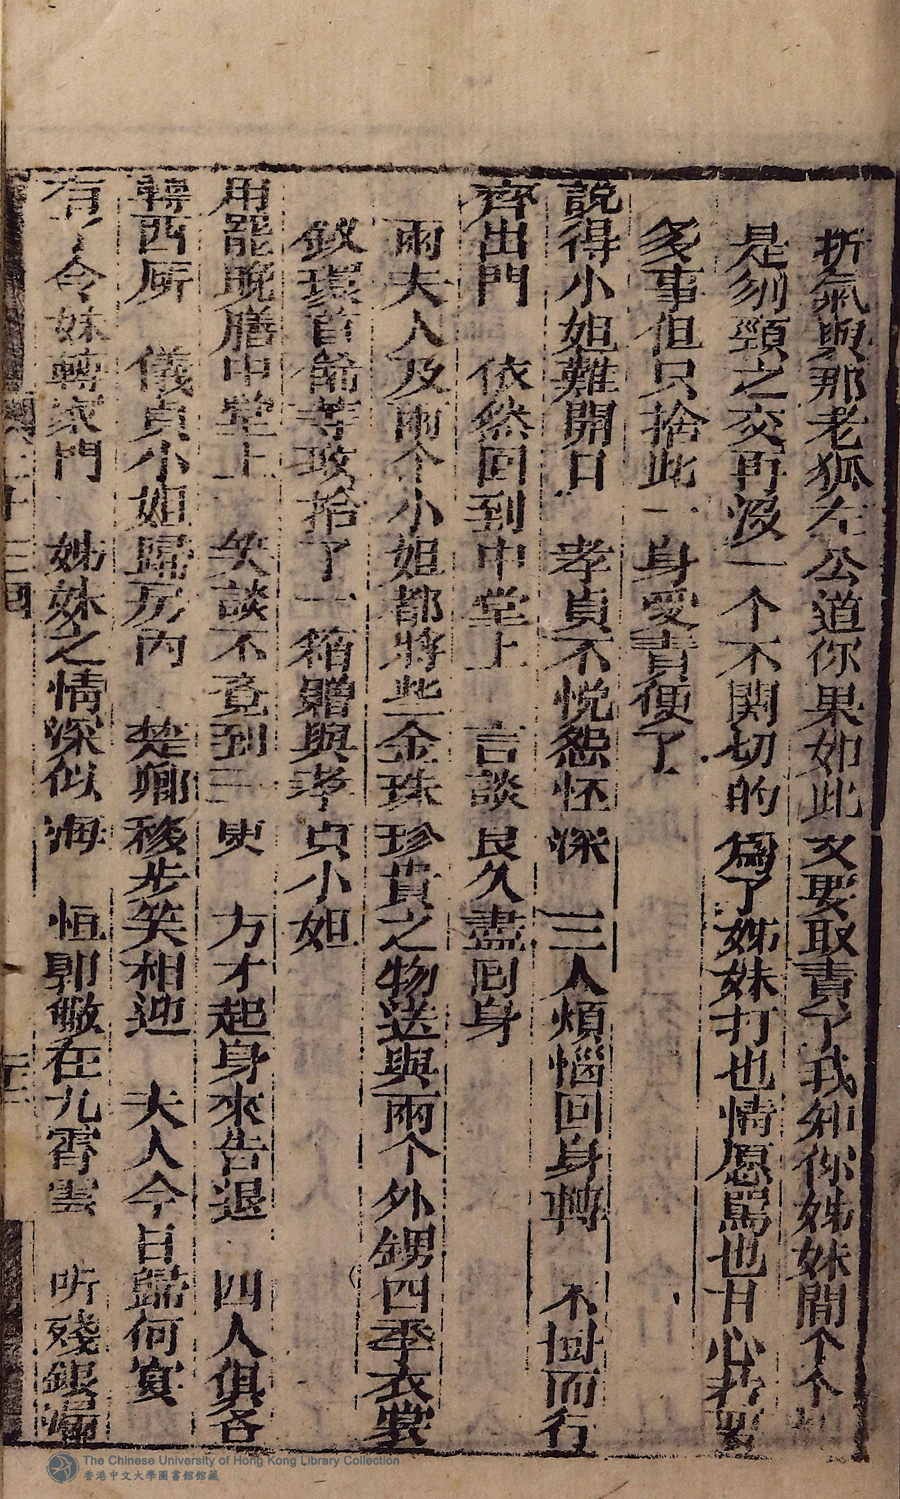 折氣與那老狐左公道你果如此又娶取責了我知你姊妹間个个
是刎頸之交再沒一个不関切的為了姊妹打也情愿罵也甘心若要
多事但只捨此一身受責便了
說得小姐難開口　孝貞不悅怨怀深　三人煩惱回身轉　不尙而行
齊出門　依然回到中堂上　言談良久盡囘身
兩夫人及兩个小姐都將些金珠珍貴之物送與兩个外甥四季衣裳
釵環首飾等致拾了一箱贈與孝貞小姐
用罷晚膳中堂上　笑談不覚到三更　方才起身來告退　四人俱各
轉西所　儀貞小姐歸房內　楚卿移步笑相迎　夫人今日歸何宴
有了令妹轉家門　姊妹之情深似海　恒郭敏在九霄雲　听殘銀漏